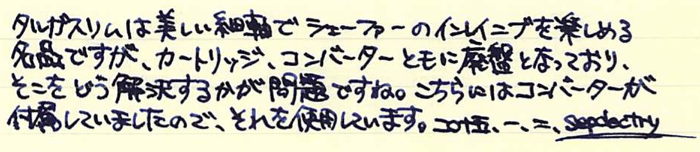 タルガスリムは美しい細軸でシェーファーのインレイニブを楽しめる
名品ですが、カートリッジ、コンバーターともに廃盤となっており、
そこをどう解決するかが問題ですね。こちらにはコンバーターが
付属していましたので、それを使用しています。二〇十五、一、二、